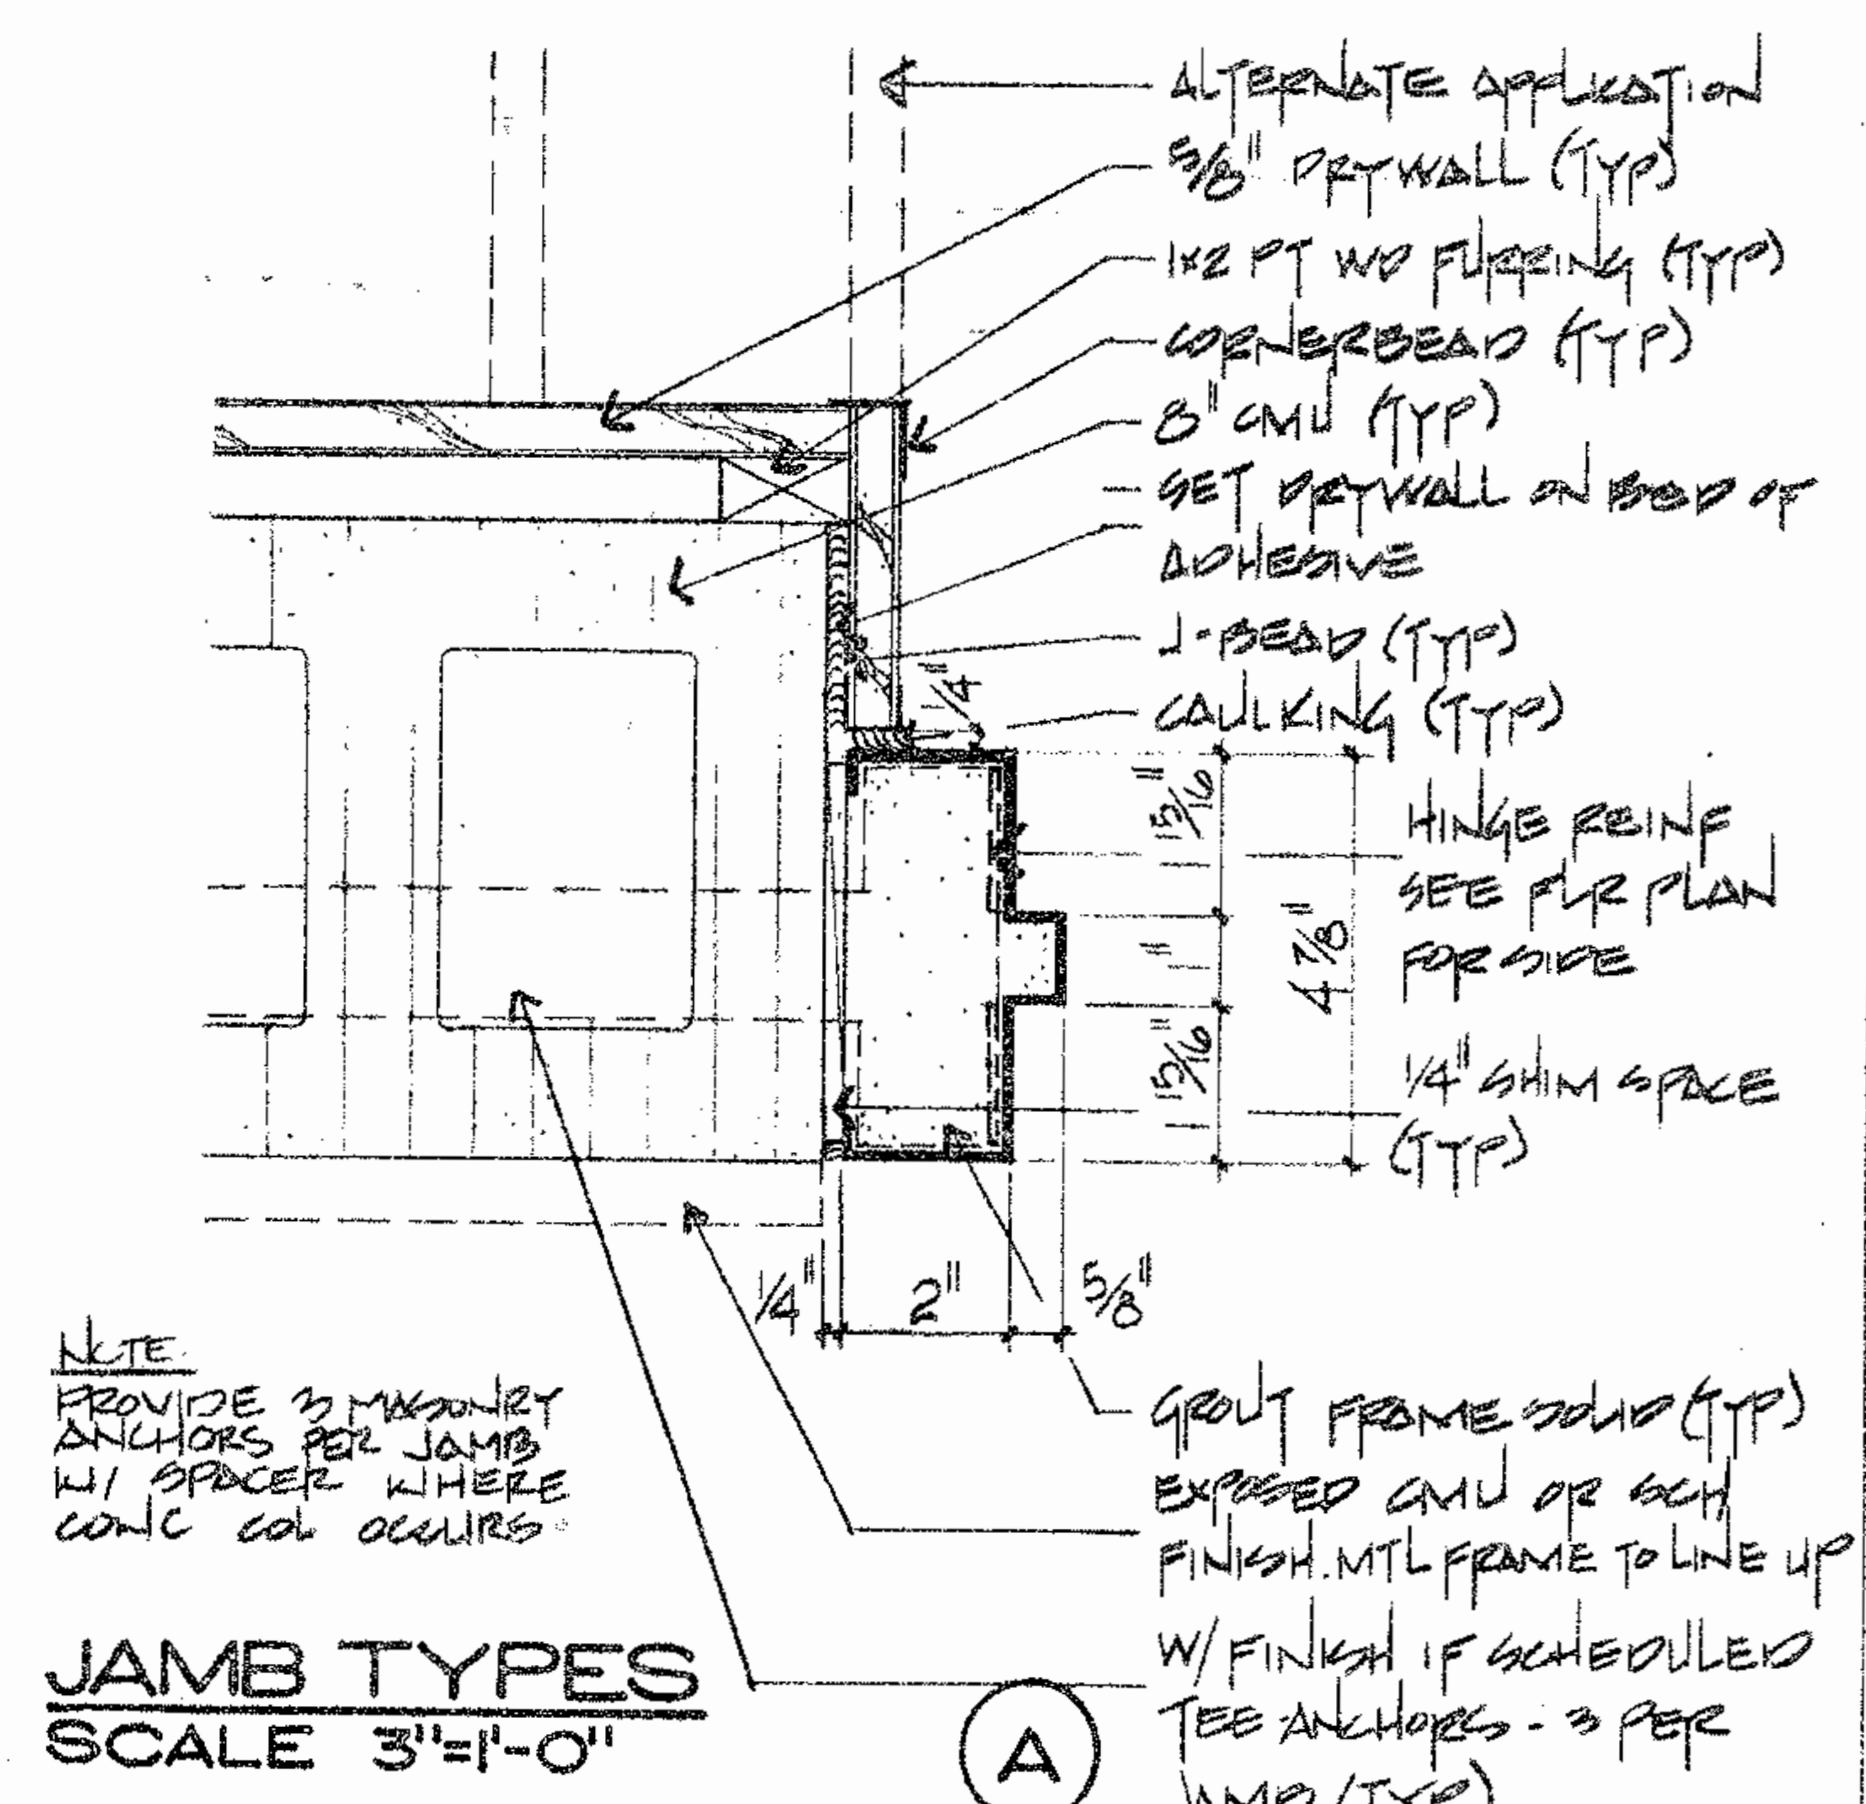 ALTERNATE APPLICATION
5/8" DRYWALL (TYP)
1x2 PT WD FURRING (TYP)
CORNERBEAD (TYP)
8" CMU (TYP)
SET DRYWALL ON BED OF
ADHESIVE
J-BEAD (TYP)
1/4"
CAULKING (TYP)
1 15/16"
HINGE REINF
SEE FLR PLAN
FOR SIDE
1"
4 7/8"
1 15/16"
1/4" SHIM SPACE
(TYP)
1/4" 2" 5/8"
NOTE
PROVIDE 3 MASONRY
ANCHORS PER JAMB
W/ SPACER WHERE
CONC COL OCCURS
GROUT FRAME SOLID (TYP)
EXPOSED CMU OR SCH
FINISH. MTL FRAME TO LINE UP
W/ FINISH IF SCHEDULED
TEE ANCHORS - 3 PER
JAMB (TYP)
JAMB TYPES
SCALE 3"=1'-0"
A